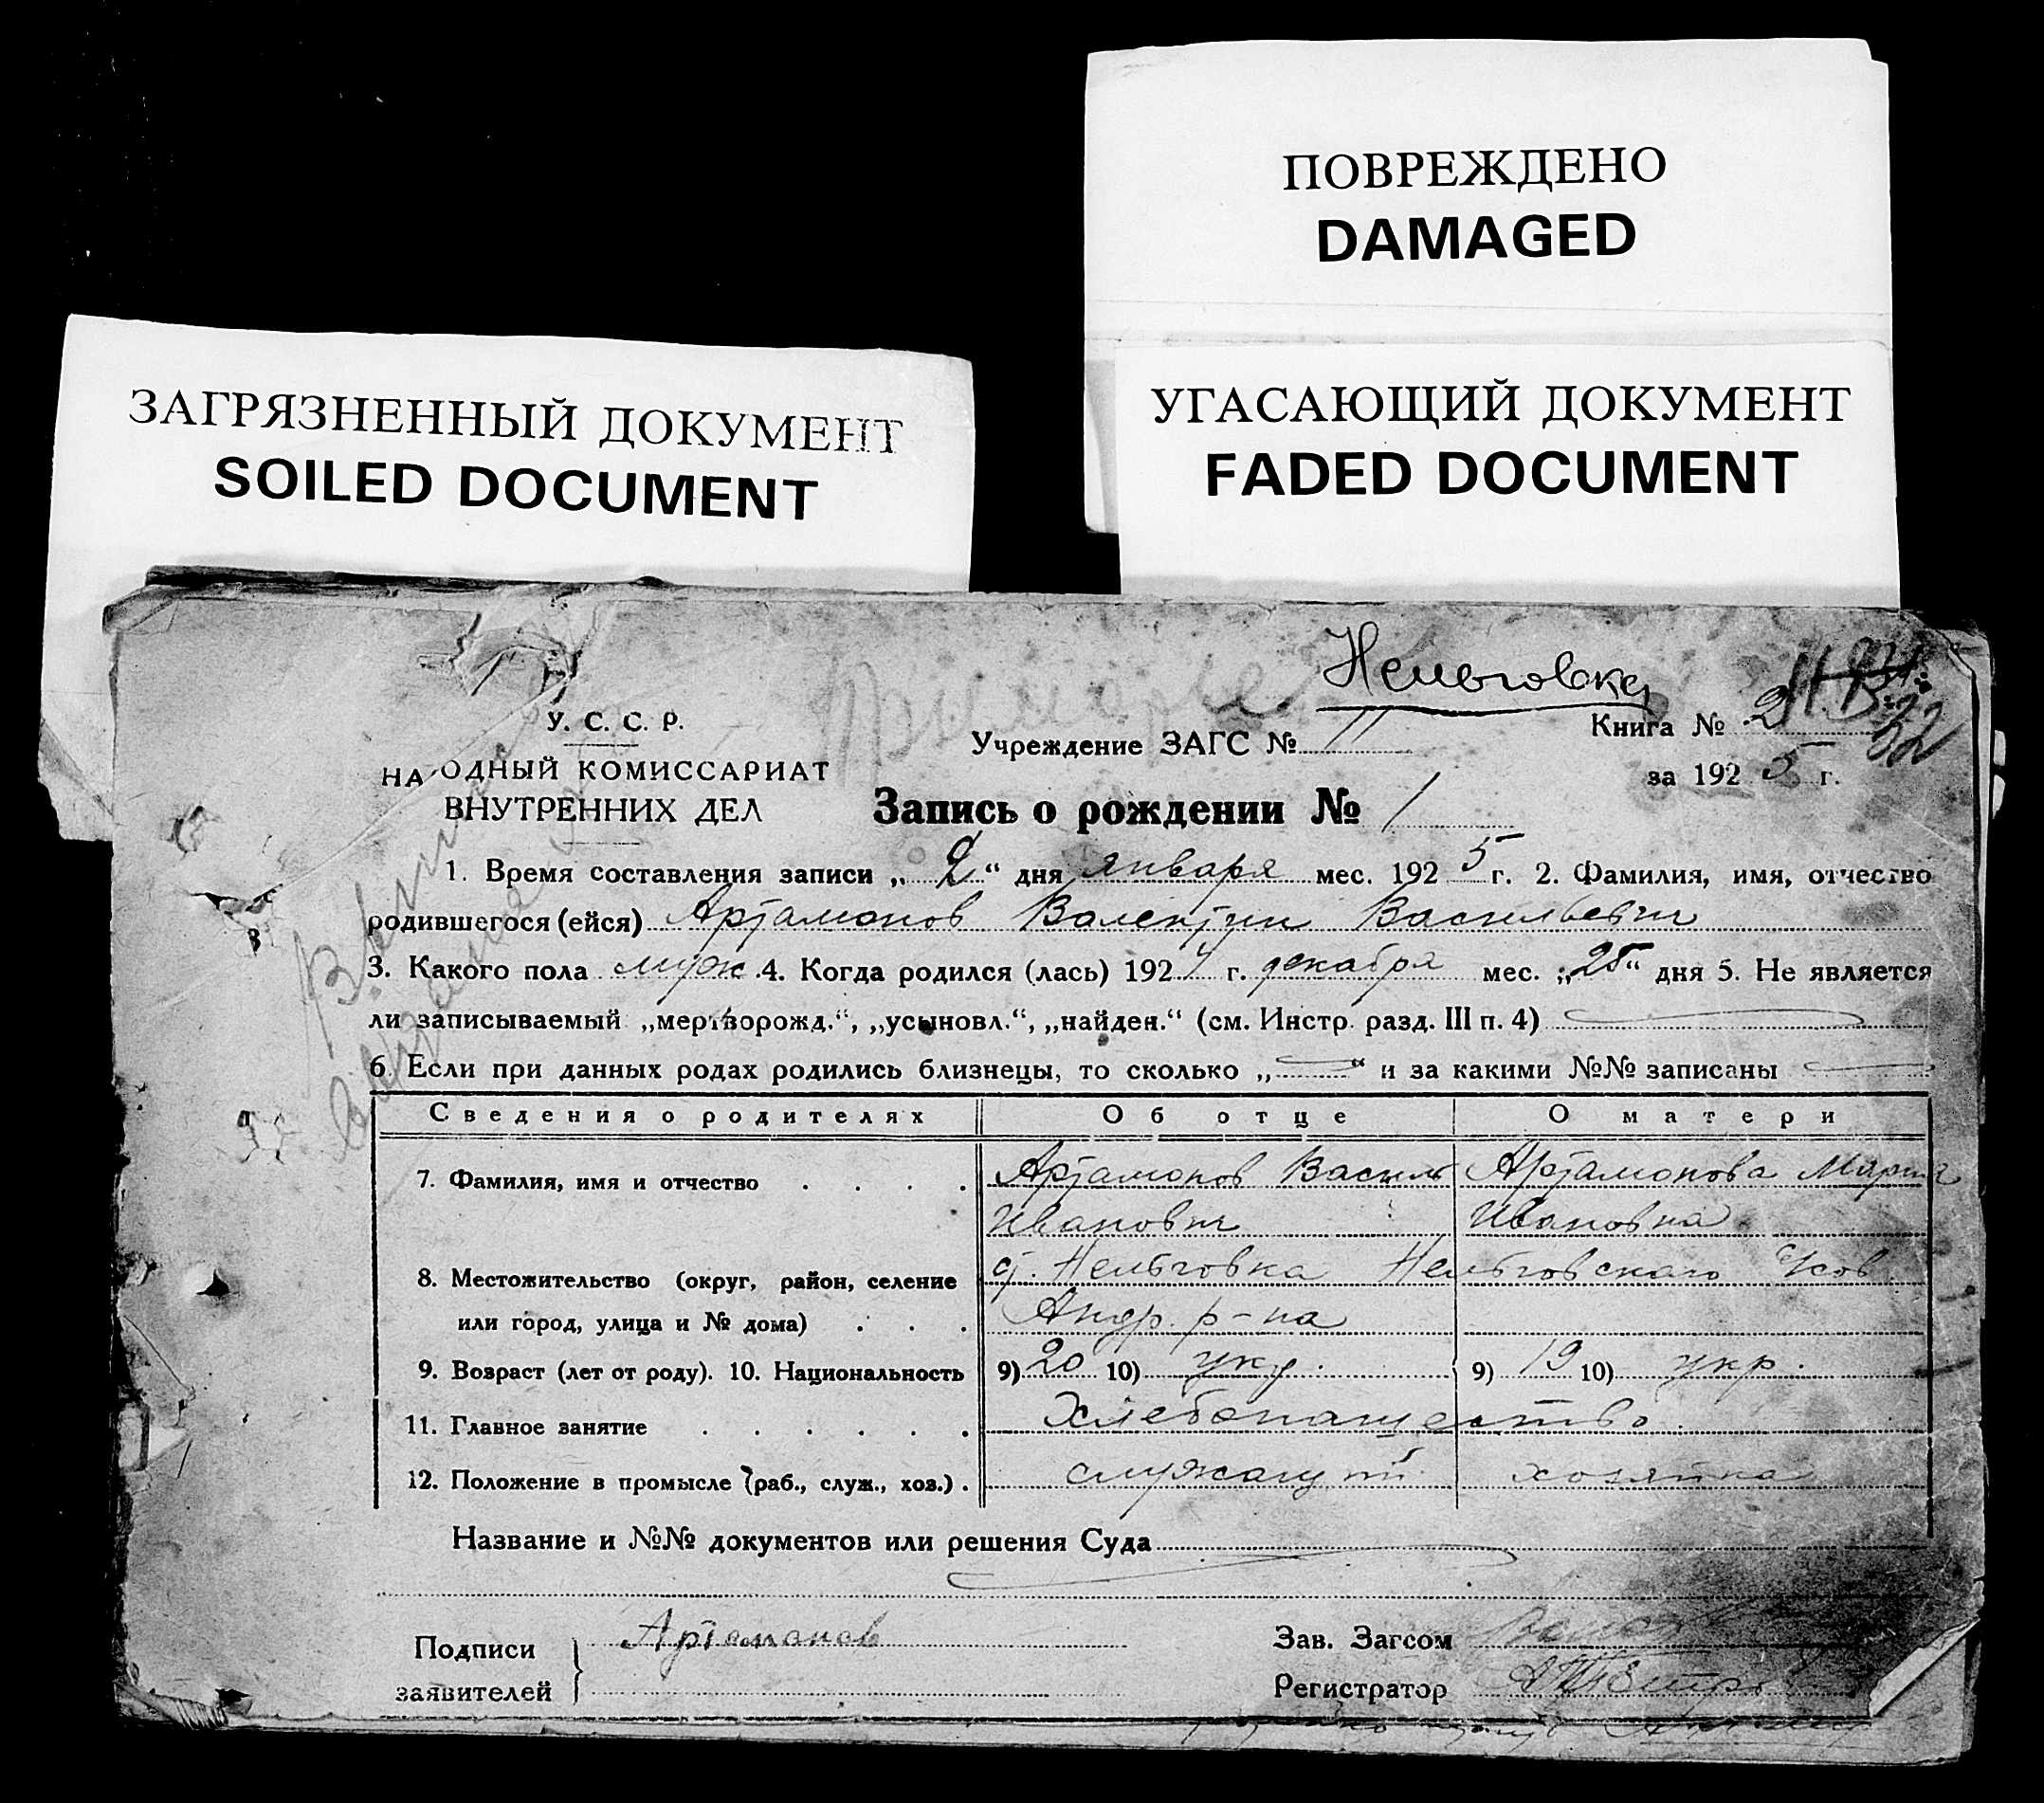 ПОВРЕЖДЕНО
DAMAGED
ЗАГРЯЗНЕННЫЙ ДОКУМЕНТ
SOILED DOCUMENT
УГАСАЮЩИЙ ДОКУМЕНТ
FADED DOCUMENT
Нельговка
У. С. С. Р.
НАРОДНЫЙ КОМИССАРИАТ
ВНУТРЕННИХ ДЕЛ
Учреждение ЗАГС № 11
Книга № 2
за 1925 г.
Запись о рождении № 1
1. Время составления записи „2“ дня января мес. 1925 г. 2. Фамилия, имя, отчество
родившегося (ейся) Артамонов Валентин Васильевич
3. Какого пола муж. 4. Когда родился (лась) 1924 г. декабря мес. „25“ дня 5. Не является
ли записываемый „мертворожд.“, „усыновл.“, „найден.“ (см. Инстр. разд. III п. 4)
6. Если при данных родах родились близнецы, то сколько „ “ и за какими №№ записаны
Сведения о родителях Об отце О матери
7. Фамилия, имя и отчество . . . . Артамонов Василь Артамонова Мария
Иванович Ивановна
8. Местожительство (округ, район, селение с. Нельговка Нельговского
или город, улица и № дома) . . . Андр. р-на
9. Возраст (лет от роду). 10. Национальность 9) 20 10) укр. 9) 19 10) укр.
11. Главное занятие . . . . . . Хлебопашество.
12. Положение в промысле (раб., служ., хоз.) . служащий хозяйка
Название и №№ документов или решения Суда
Подписи
заявителей } Артамонов
Зав. Загсом
Регистратор